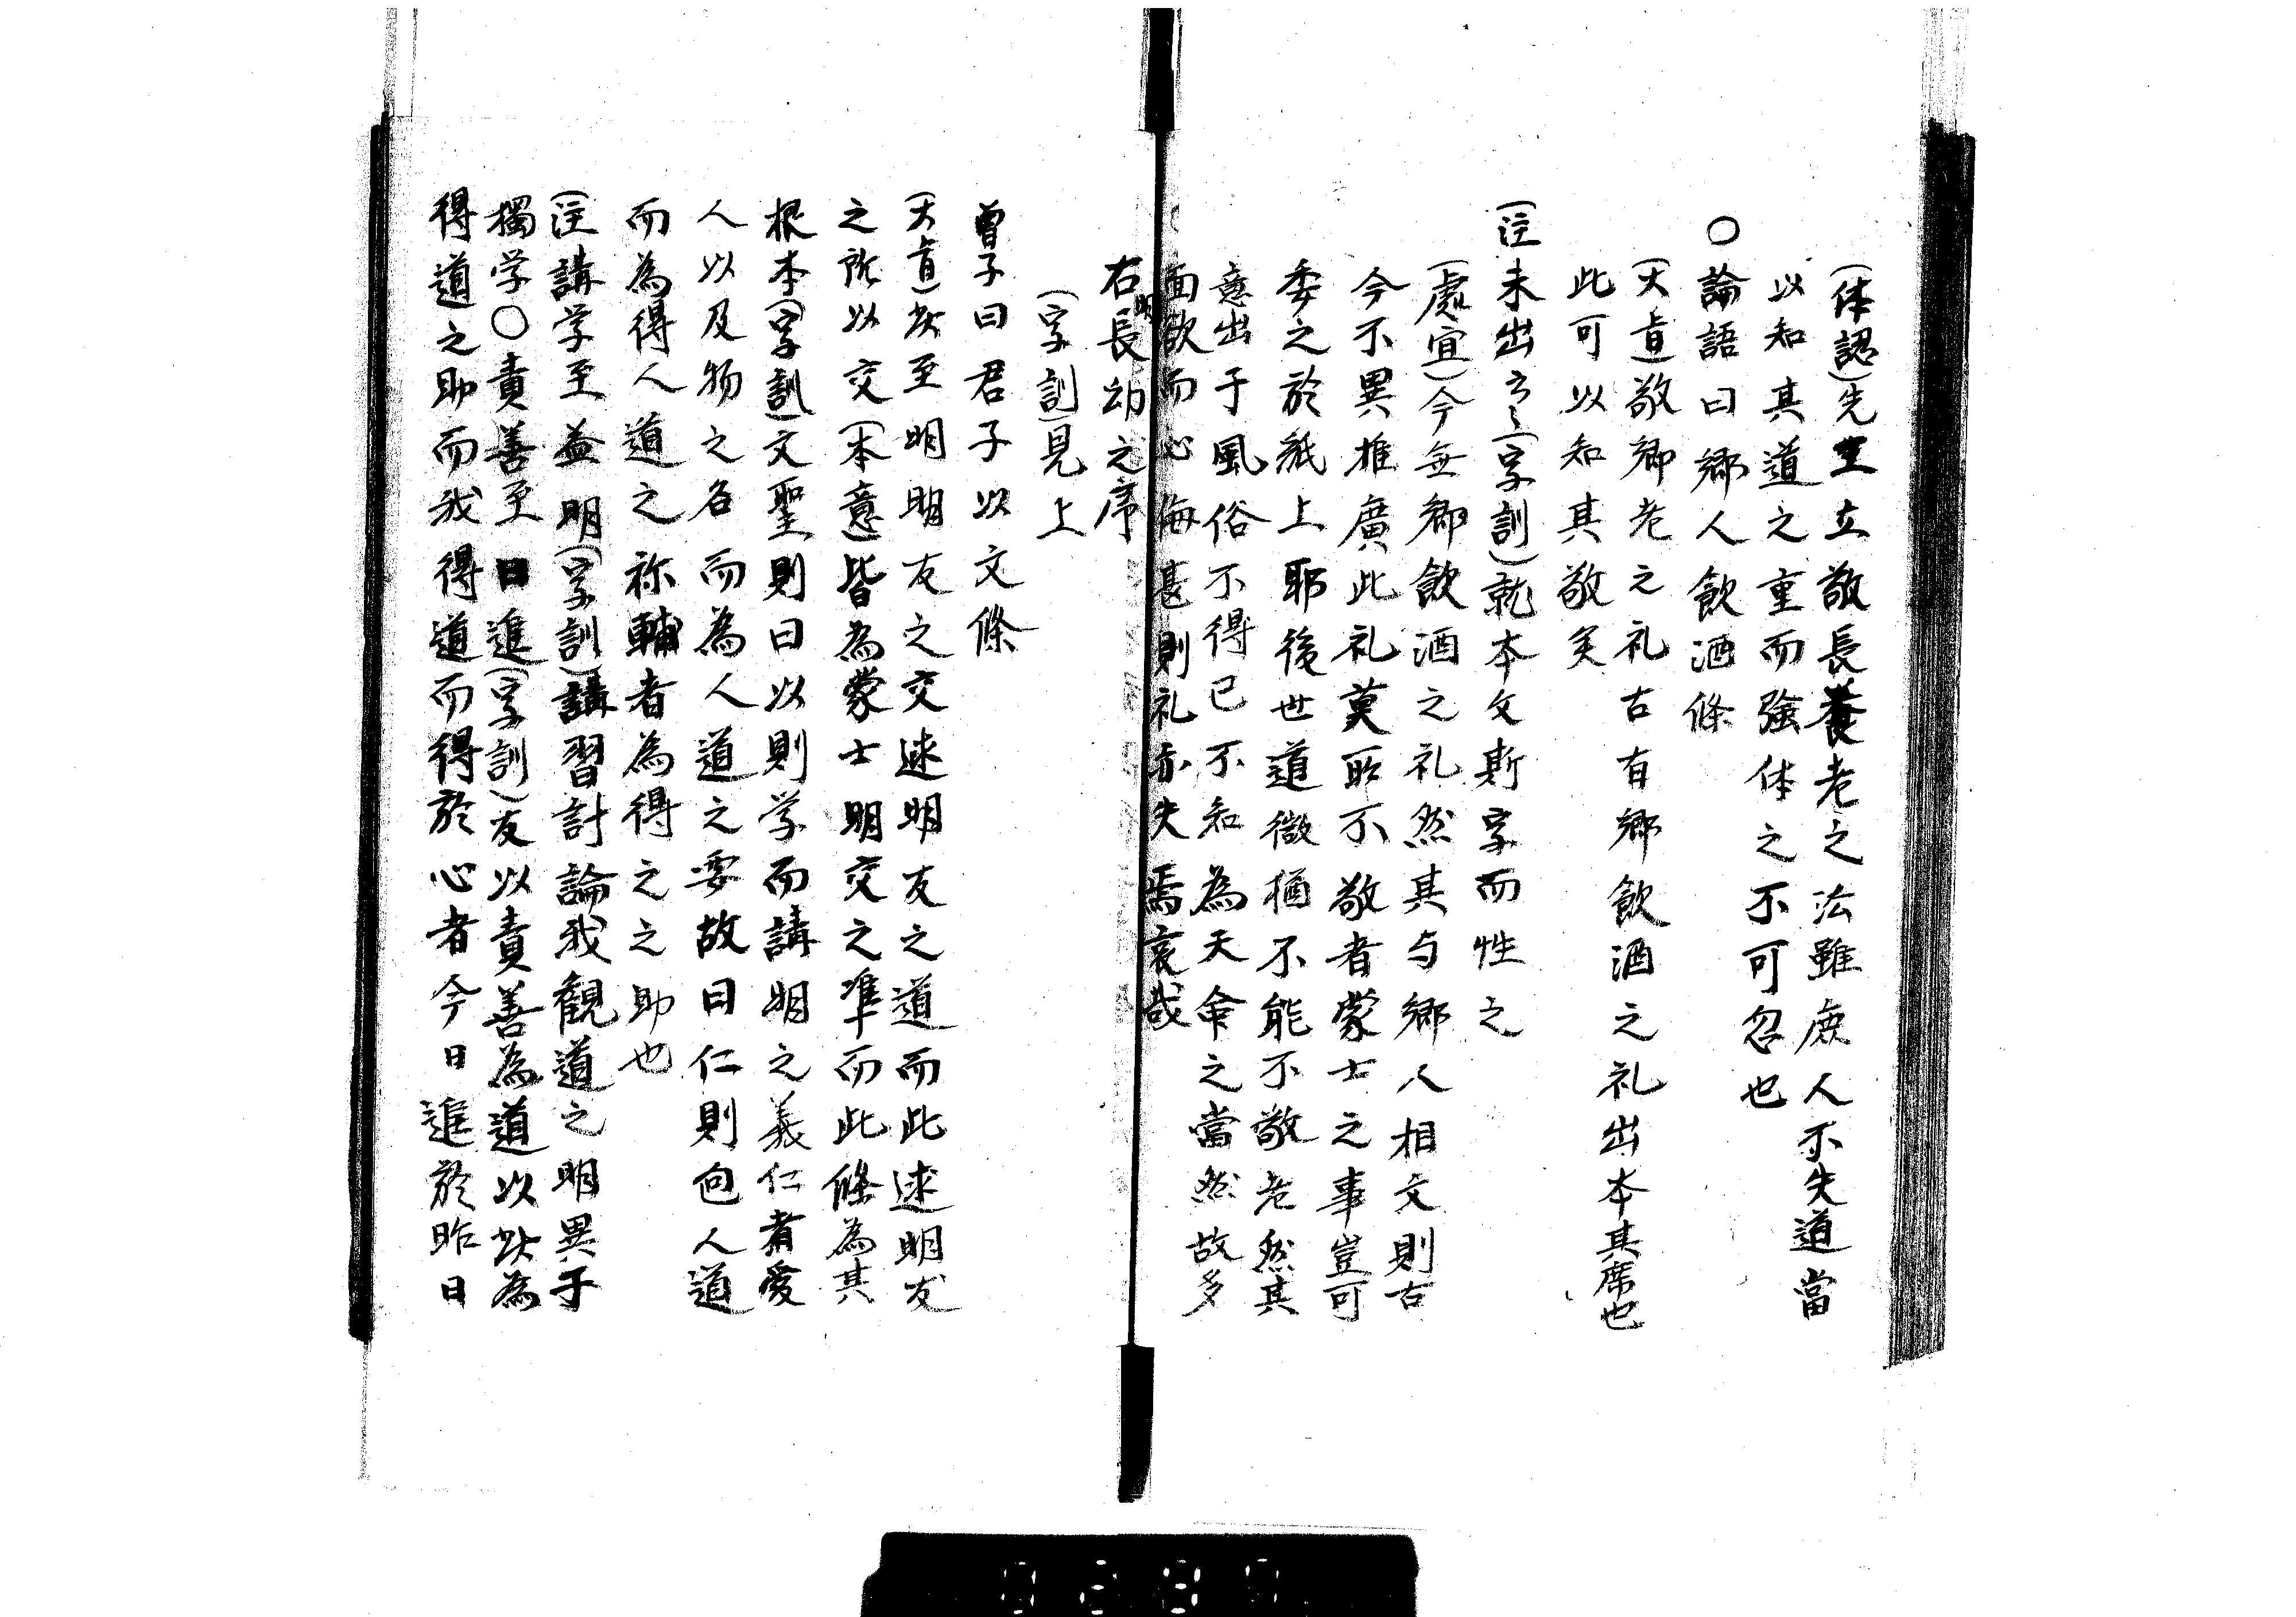 (体認)先王立敬長養老之法雖庶人不失道當
以知其道之重而強体之不可忽也
○論語曰郷人飲酒條
(大旨)敬郷老之礼古有郷飲酒之礼出本其席也
此可以知其敬矣
(注未出云々(字訓)就本文斯字而性之
(處宜)今無郷飲酒之礼然其与郷人相交則古
今不異推廣此礼莫所不敬者蒙士之事豈可
委之於紙上耶後世道微猶不能不敬老然其
意出于風俗不得已不知為天命之當然故多
面欲而心侮甚則礼亦失焉哀哉
右明長幼之序
(字訓)見上
曽子曰君子以文條
(大旨)此至明朋友之交述朋友之道而此述明友
之所以交(本意)皆為蒙士明交之準而此條為其
根本(字訓)文聖則曰以則学而講明之義仁者愛
人以及物之名而為人道之要故曰仁則包人道
而為得人道之称輔者為得之之助也
(注講学至益明(字訓)講習討論我観道之明異于
獨学○責善至日進(字訓)友以責善為道以此為
得道之助而我得道而得於心者今日進於昨日